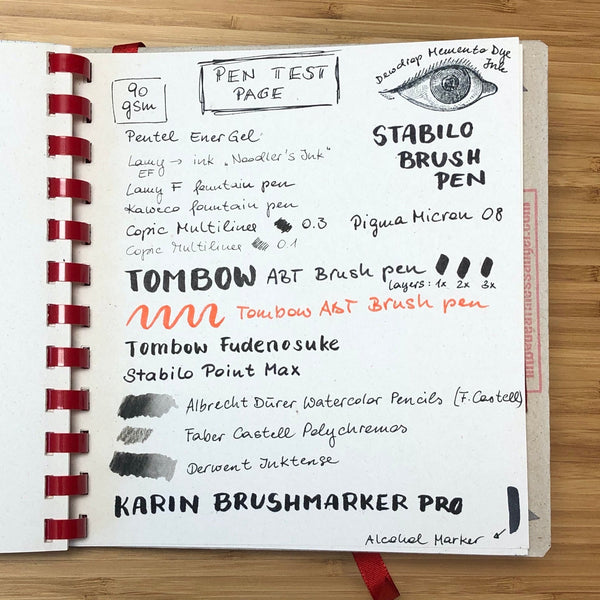 90
gsm
PEN TEST
PAGE
Dewdrop Memento Dye
Ink
Pentel EnerGel
STABILO
BRUSH
PEN
Lamy → ink „Noodler's Ink"
EF
Lamy F fountain pen
Kaweco fountain pen
Copic Multiliner 0.3 Pigma Micron 08
Copic Multiliner 0.1
TOMBOW ABT Brush pen
layers: 1x 2x 3x
Tombow ABT Brush pen
Tombow Fudenosuke
Stabilo Point Max
Albrecht Dürer Watercolor Pencils (F. Castell)
Faber Castell Polychromos
Derwent Inktense
KARIN BRUSHMARKER PRO
Alcohol Marker